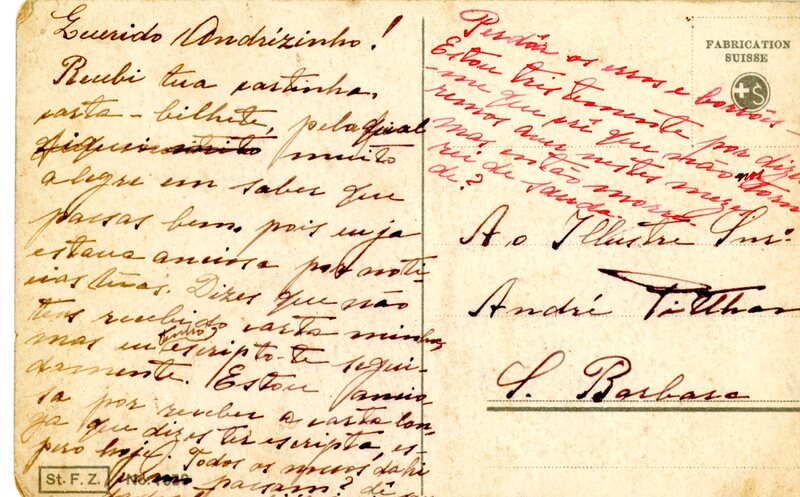 Querido Andrézinho!
Recebi tua cartinha,
carta-bilhete, pela qual
fiquei muito
alegre em saber que
passas bem, pois eu já
estava anciosa por noti-
cias tuas. Dizes que não
tens recebido carta minha,
mas eu tenho escripto-te segui-
damente. Estou ancio-
sa por receber a carta lon-
ga que dizes ter escripta, es-
pero hoje. Todos os meus dahi
passam? dê
Perdôr os erros e borrões-
Estou tristemente por dizer-
me que crê que não nos torna-
remos a ver nestes mezes
mas então morre-
rei de sauda-
de?
FABRICATION
SUISSE
+S
Ao Illustre Snr.
André
S. Barbara
St. F. Z.
No.